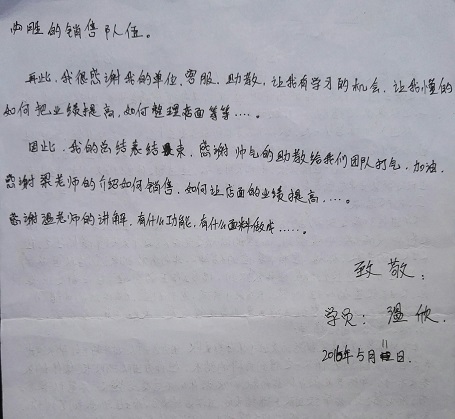 的销售队伍。
再此,我很感谢我的单位,客服,助教,让我有学习的机会,让我懂的
如何把业绩提高,如何整理店面等等....。
因此,我的总结表结束,感谢帅气的助教给我们团队打气,加油,
感谢梁老师的介绍如何销售,如何让店面的业绩提高,....。
感谢老师的讲解,有什么功能,有什么面料做成.....。
致敬:
学员:温欣.
2016年5月11日.